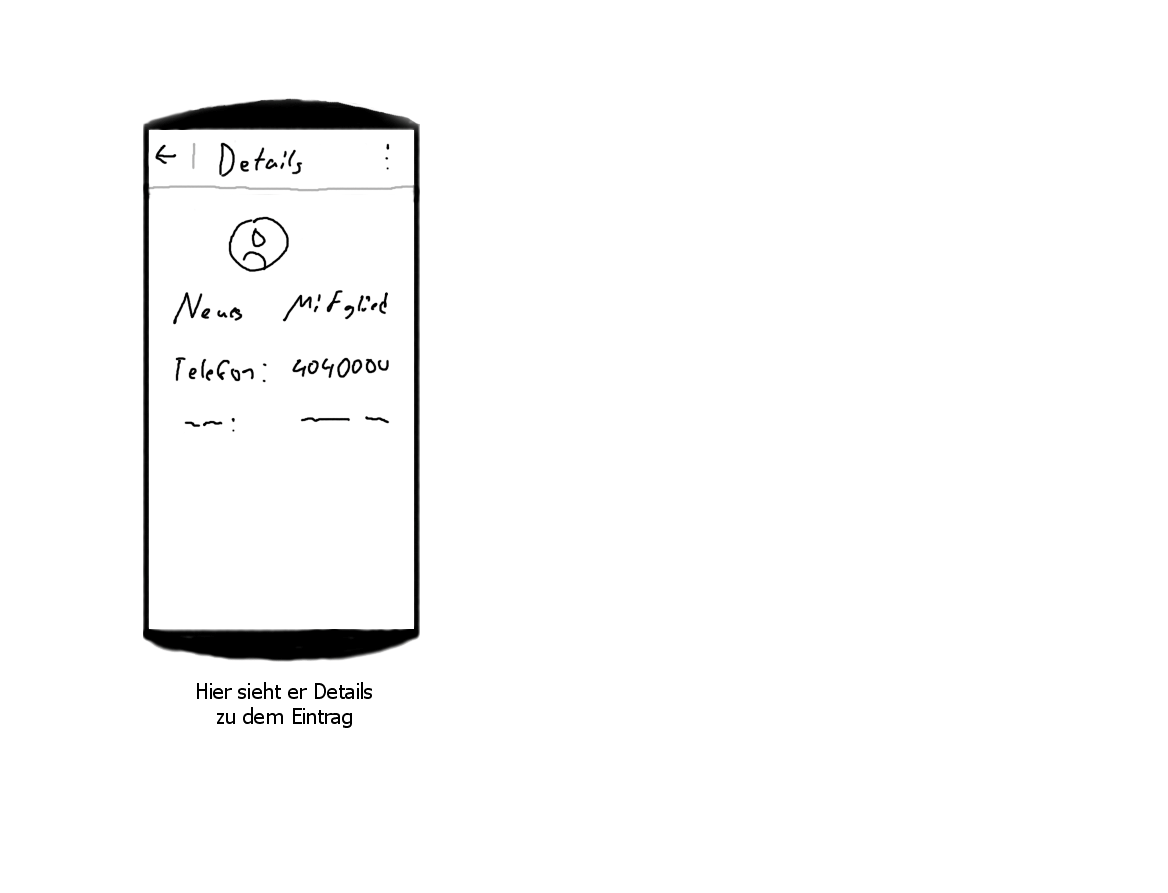 Details
Neues Mitglied
Telefon: 4040000
Hier sieht er Details
zu dem Eintrag